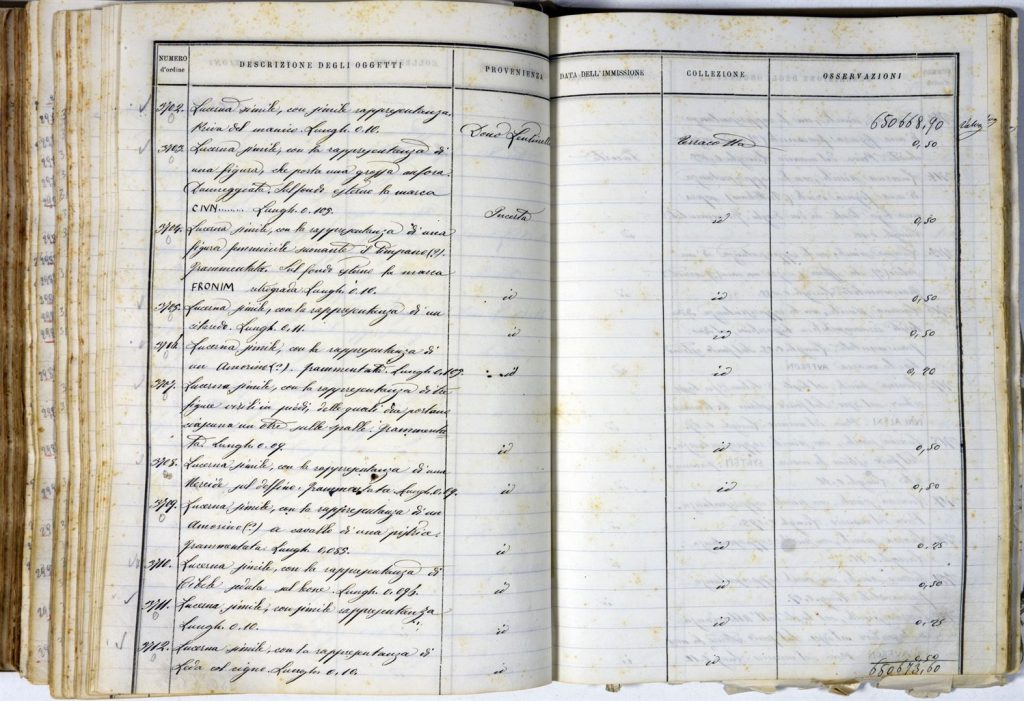 NUMERO d'ordine DESCRIZIONE DEGLI OGGETTI PROVENIENZA DATA DELL'IMMISSIONE COLLEZIONE OSSERVAZIONI
650668,90
3702. Lucerna simile, con simile rappresentanza.
Priva del manico. Lungh. 0.10. Dono Terracotta 0,50
3703. Lucerna simile, con la rappresentanza di
una figura, che porta una grossa anfora.
Danneggiata. Sul fondo esterno la marca
CIVN........ Lungh. 0.105. Incerta id 0,50
3704. Lucerna simile, con la rappresentanza di una
figura femminile suonante il timpano (?).
Frammentata. Sul fondo esterno la marca
FRONIM retrograda. Lungh. 0.10. id id 0,50
3705. Lucerna simile, con la rappresentanza di un
citaredo. Lungh. 0.11. id id 0,50
3706. Lucerna simile, con la rappresentanza di
un Amorino (?). frammentata. Lungh. 0.109. id id 0,20
3707. Lucerna simile, con la rappresentanza di tre
figure virili in piedi, delle quali due portano
ciascuna un otre sulle spalle. frammenta-
ta. Lungh. 0.09. id id 0,50
3708. Lucerna simile, con la rappresentanza di una
Nereide sul delfino. frammentata. Lungh. 0.09. id id 0,50
3709. Lucerna simile, con la rappresentanza di un
Amorino (?) a cavallo di una pistrice.
Frammentata. Lungh. 0,085. id id 0,25
3710. Lucerna simile, con la rappresentanza di
Cibele seduta sul leone. Lungh. 0.095. id id 0,50
3711. Lucerna simile, con simile rappresentanza
Lungh. 0.10. id id 0,25
3712. Lucerna simile, con la rappresentanza di
Leda col cigno. Lungh. 0,10. id id 0,50
650673,60